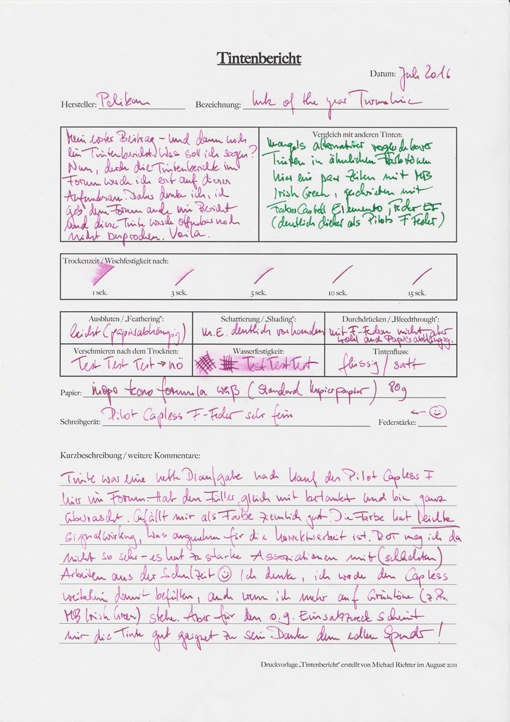 Tintenbericht
Datum: Juli 2016
Hersteller: Pelikan Bezeichnung: Ink of the year Turmaline
Mein erster Beitrag - und dann noch
ein Tintenbericht! Was soll ich sagen?
Nun, durch die Tintenberichte im
Forum wurde ich erst auf diese
Aufmerksam. Daher denke ich, ich
geb dem Forum auch ein Bericht
und diese Tinte wurde offenbar noch
nicht besprochen. Voila.
Vergleich mit anderen Tinten:
Mangels alternativer vergleichbarer
Tinten in ähnlichen Farbtönen
hier ein paar Zeilen mit MB
Irish Green, geschrieben mit
Faber Castell Elemento, Feder EF
(deutlich dicker als Pilots F Feder)
Trockenzeit / Wischfestigkeit nach:
1 sek. 3 sek. 5 sek. 10 sek. 15 sek.
Ausbluten / „Feathering": Schattierung / „Shading": Durchdrücken / „Bleedthrough":
leicht (papierabhängig) m.E. deutlich vorhanden mit F-Federn nicht aber
wohl auch Papierabhängig.
Verschmieren nach dem Trocknen: Wasserfestigkeit: Tintenfluss:
Test Test Test → nö Test Test Test flüssig / satt
Papier: inapa tecno formula weiß (Standard Kopierpapier) 80g
Schreibgerät: Pilot Capless F-Feder sehr fein Federstärke: ←
Kurzbeschreibung / weitere Kommentare:
Tinte war eine nette Draufgabe nach Kauf des Pilot Capless F
hier im Forum - Hab den Füller gleich mit betankt und bin ganz
überrascht. Gefällt mir als Farbe ziemlich gut. Die Farbe hat leichte
Signalwirkung, was angenehm für die Korrekturarbeit ist. Dort mag ich das
nicht so sehr - es hat zu starke Assoziationen mit (schlechten)
Arbeiten aus der Schulzeit Ich denke, ich werde den Capless
weiterhin damit befüllen, auch wenn ich mehr auf Grüntöne (z.B.
MB Irish Green) stehe. Aber für den o.g. Einsatzzweck scheint
mir die Tinte gut geeignet zu sein. Danke dem edlen Spender!
Druckvorlage „Tintenbericht" erstellt von Michael Richter im August 2011